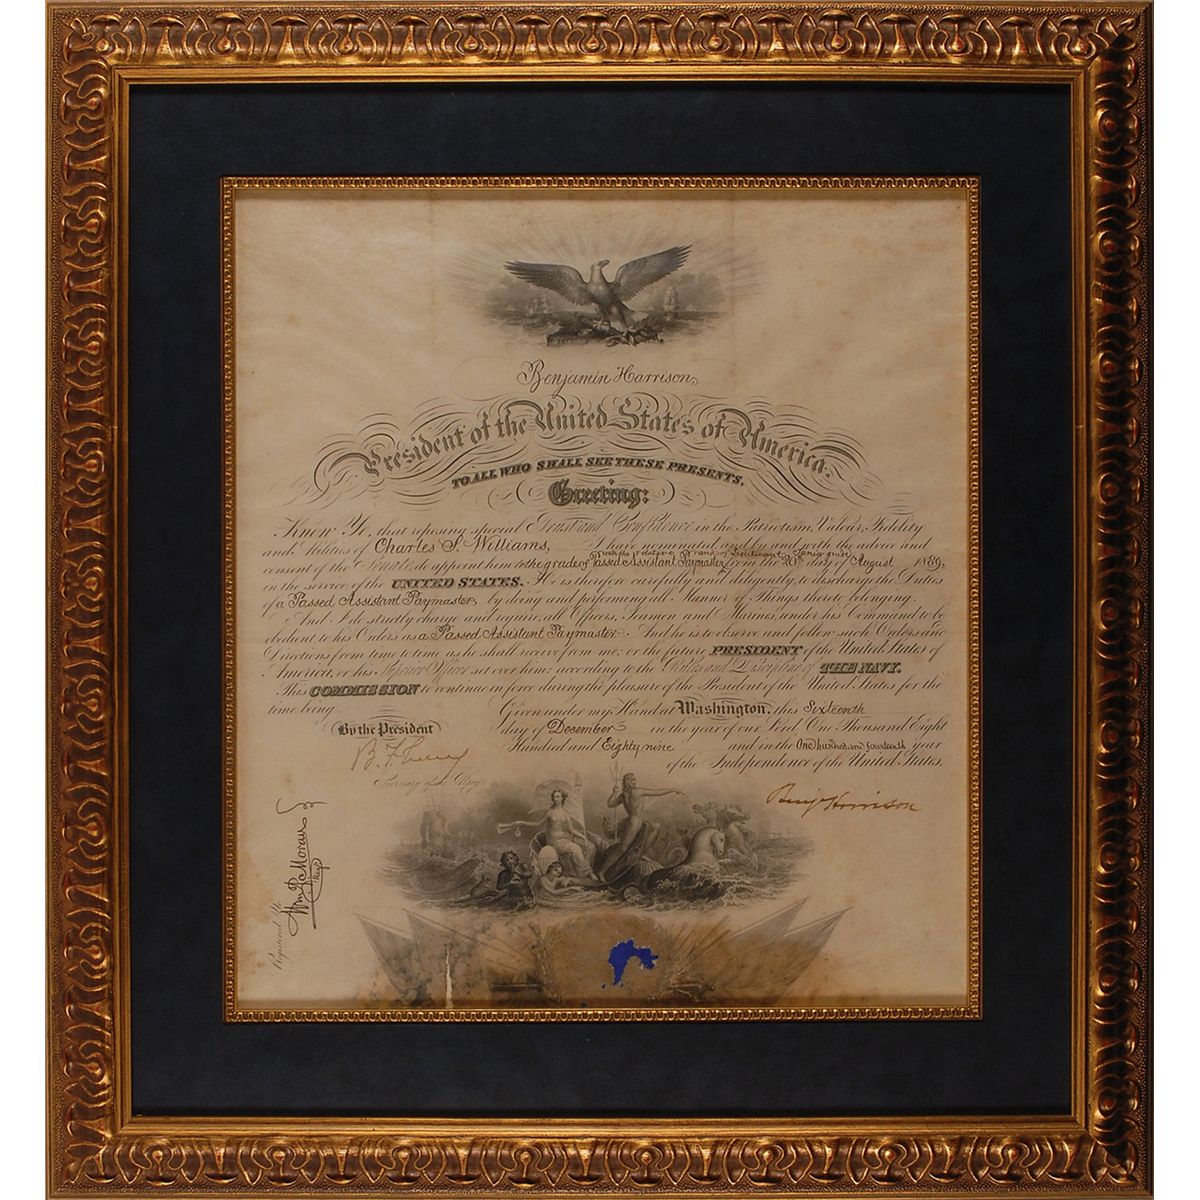 Benjamin Harrison,
President of the United States of America.
TO ALL WHO SHALL SEE THESE PRESENTS,
Greeting:
Know Ye, that reposing special Trust and Confidence in the Patriotism, Valour, Fidelity
and Abilities of Charles S. Williams, I have nominated and by and with the advice and
with the relative rank of Lieutenant Junior grade
consent of the Senate do appoint him to the grade of Passed Assistant Paymaster from the 20th day of August 1889,
in the service of the UNITED STATES. He is therefore carefully and diligently, to discharge the Duties
of a Passed Assistant Paymaster by doing and performing all Manner of Things thereto belonging.
And I do strictly charge and require, all Officers, Seamen and Marines, under his Command to be
obedient to his Orders as a Passed Assistant Paymaster. And he is to observe and follow such Orders and
Directions from time to time as he shall receive from me; or the future PRESIDENT of the United States of
America, or his Superior Officer set over him; according to the Rules and Discipline of THE NAVY.
This COMMISSION to continue in force during the pleasure of the President of the United States for the
time being.
Given under my Hand at Washington, this Sixteenth
day of December in the year of our Lord One Thousand Eight
Hundred and Eighty nine and in the One hundred and fourteenth year
of the Independence of the United States.
By the President
B. F. Tracy
Secretary of the Navy
Benj Harrison
Registered